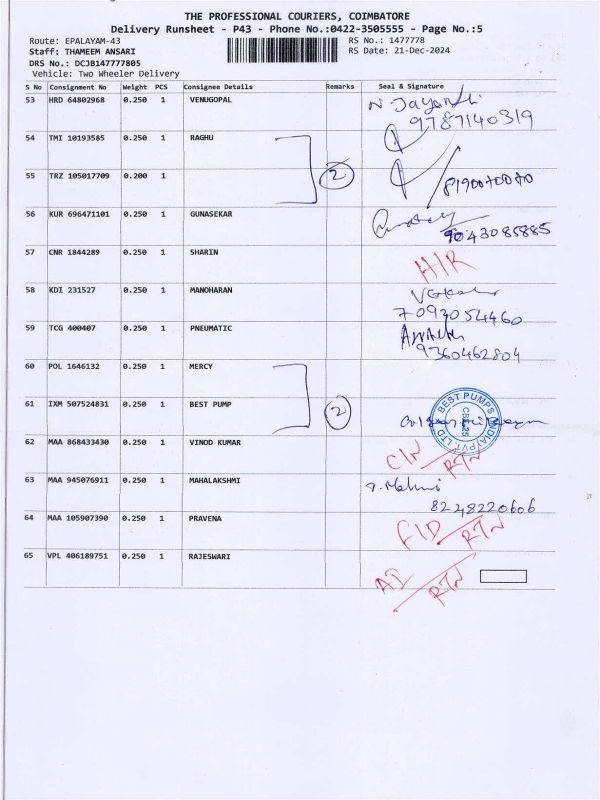 THE PROFESSIONAL COURIERS, COIMBATORE
Delivery Runsheet - P43 - Phone No.:0422-3505555 - Page No.:5
Route: EPALAYAM-43 RS No.: 1477778
Staff: THAMEEM ANSARI RS Date: 21-Dec-2024
DRS No.: DCJB147777805
Vehicle: Two Wheeler Delivery
S No Consignment No Weight PCS Consignee Details Remarks Seal & Signature
53 HRD 64802968 0.250 1 VENUGOPAL N. Jayanthi
9787140319
54 TMI 10193585 0.250 1 RAGHU
55 TRZ 105017709 0.200 1 2 8190070070
56 KUR 696471101 0.250 1 GUNASEKAR
9043085885
57 CNR 1844289 0.250 1 SHARIN H/R
58 KDI 231527 0.250 1 MANOHARAN
7093054460
59 TCG 400407 0.250 1 PNEUMATIC
9360462804
60 POL 1646132 0.250 1 MERCY
61 IXM 507524831 0.250 1 BEST PUMP 2 BEST PUMPS (INDIA) PVT. LTD
62 MAA 868433430 0.250 1 VINOD KUMAR C/N RTN
63 MAA 945076911 0.250 1 MAHALAKSHMI
8248220606
64 MAA 105907390 0.250 1 PRAVENA RTN
65 VPL 406189751 0.250 1 RAJESWARI RTN